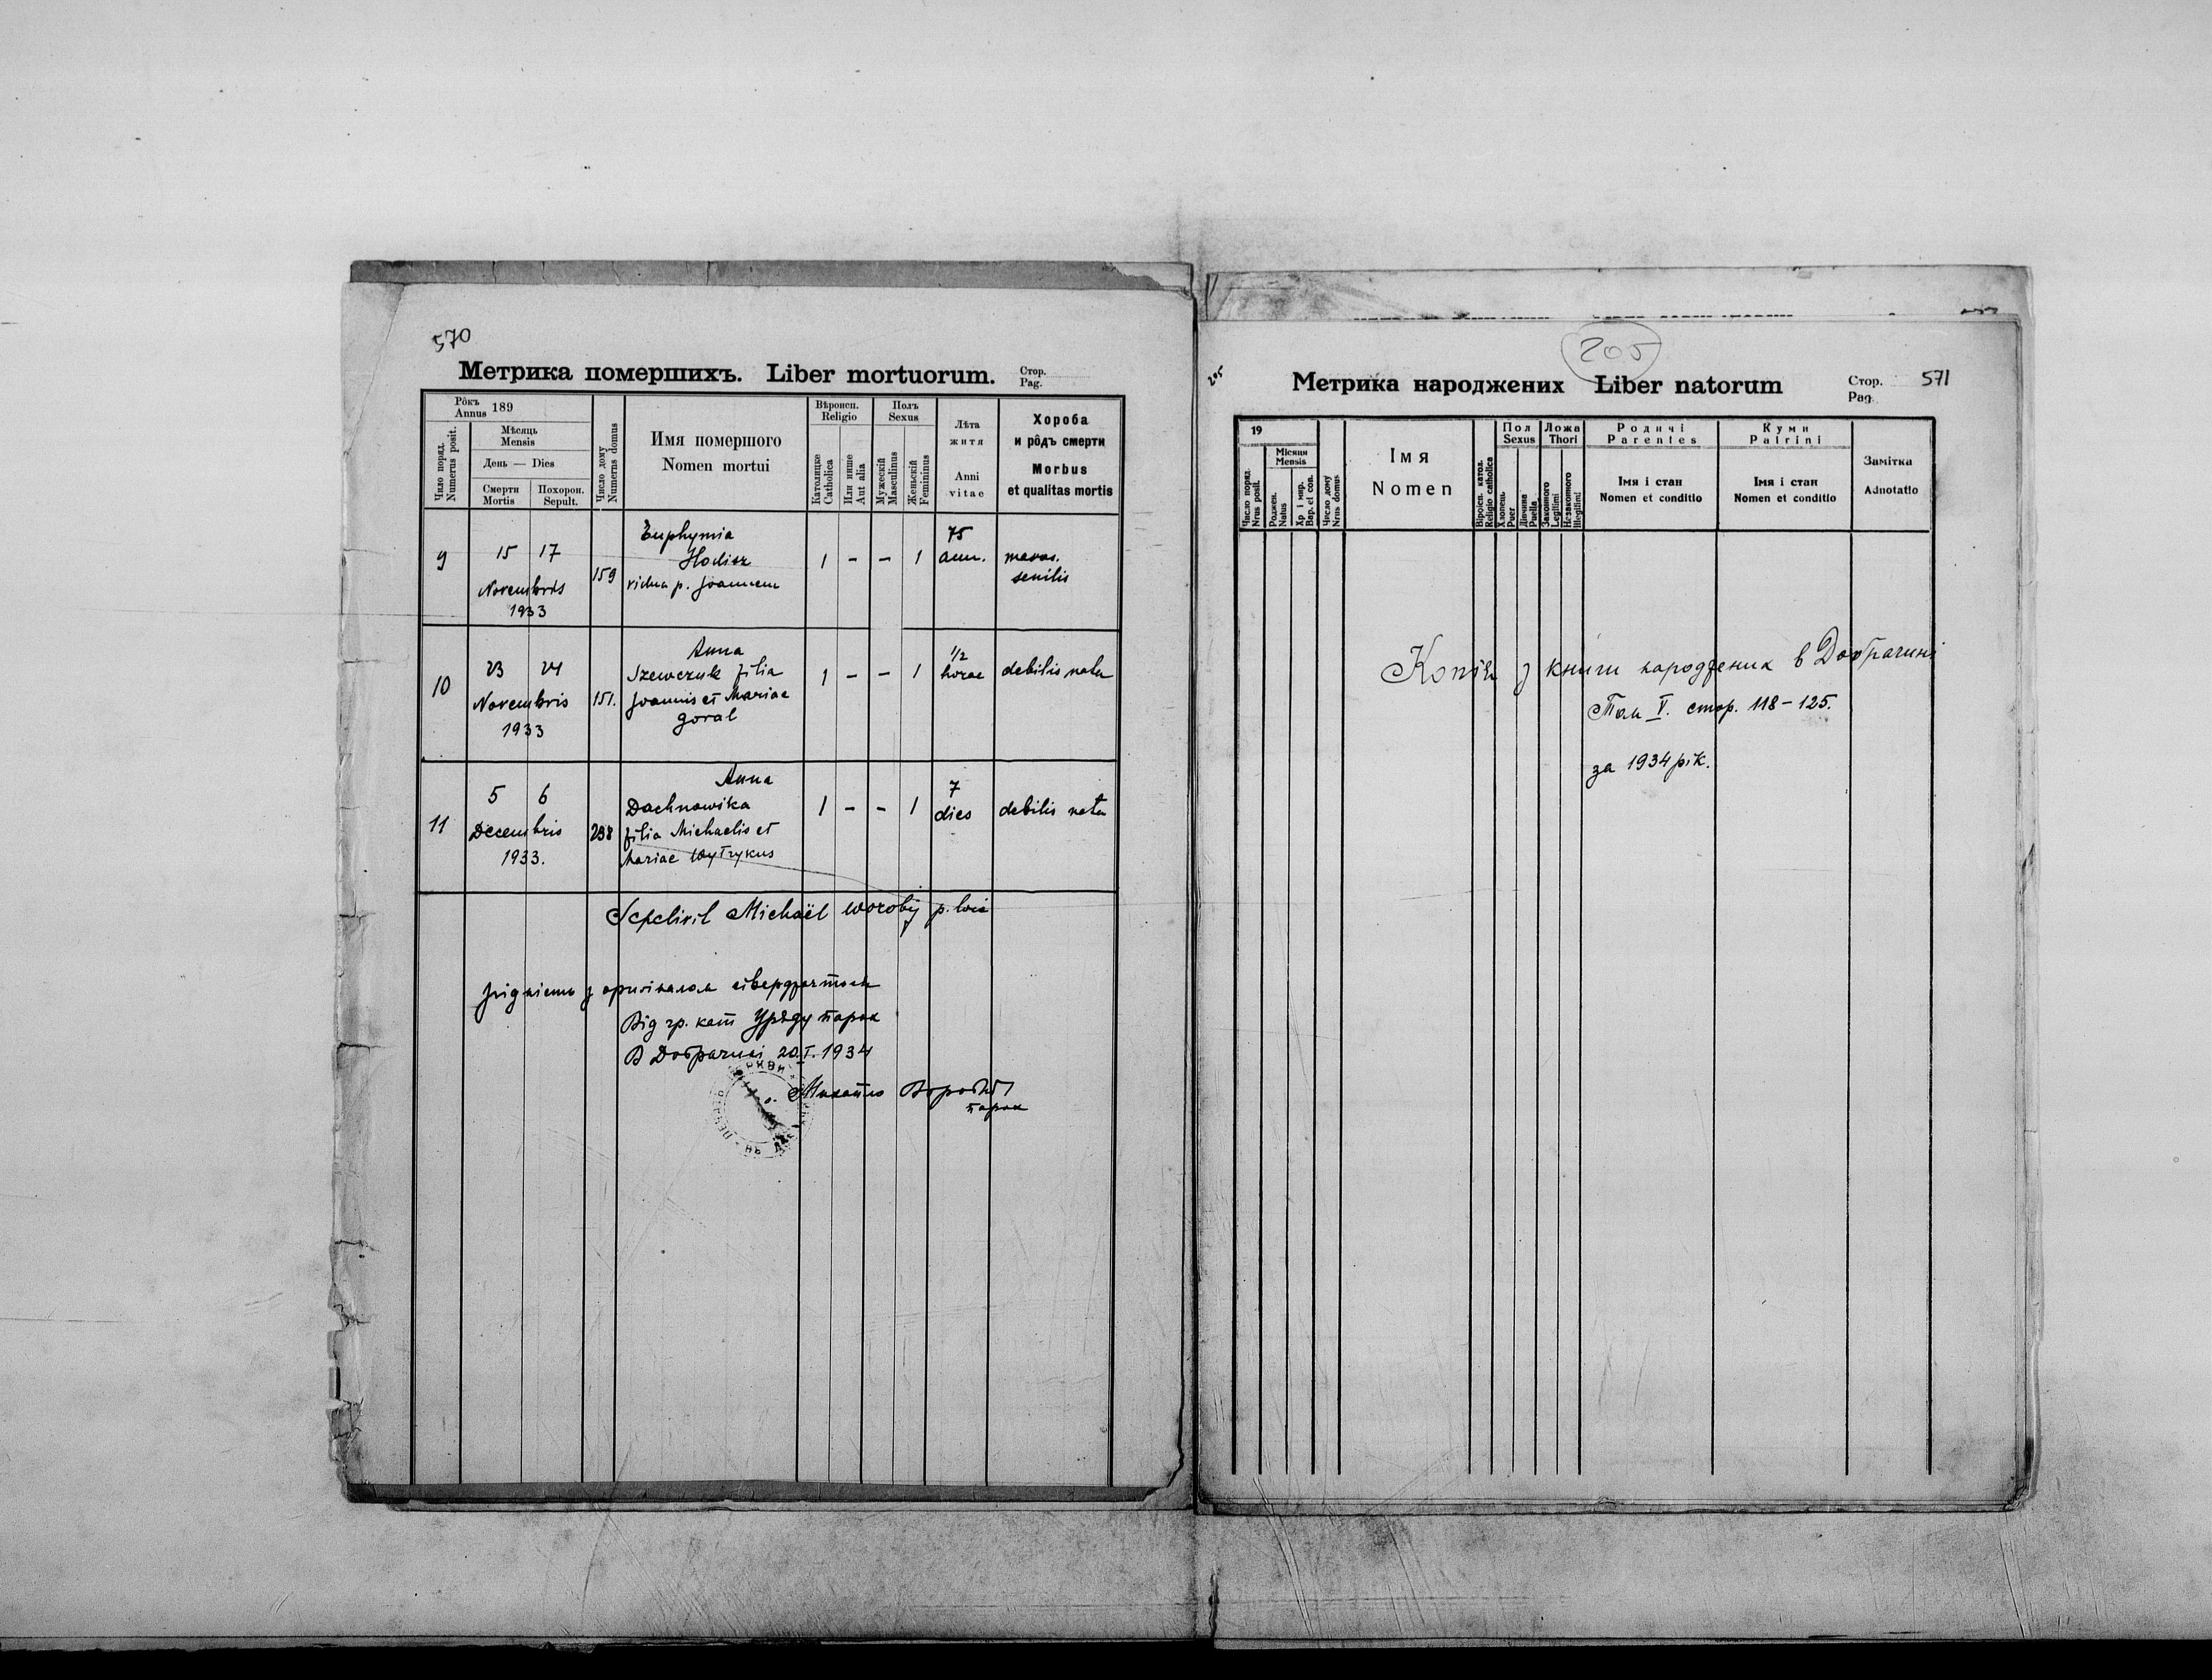 570
Метрика померших. Liber mortuorum.
Стор.
Pag.
Рôкъ
Annus 189
Мѣсяць
Mensis
День — Dies
Смерти
Mortis
Похорон.
Sepult.
Число поряд.
Numerus posit.
Число дому
Numerus domus
Имя помершого
Nomen mortui
Вѣроисп.
Religio
Католицке
Catholica
Или инше
Aut alia
Полъ
Sexus
Мужескій
Masculinus
Женьскій
Femininus
Лѣта
житя
Anni
vitae
Хороба
и рôдъ смерти
Morbus
et qualitas mortis
9
15 17
Novembris
1933
159
Euphymia
Hodisz
vidua p. Joannem
1 – – 1
75
ann.
maras.
senilis
10
23 24
Novembris
1933
151.
Anna
Szewczuk filia
Joannis et Mariae
Goral
1 – – 1
1/2
horae
debilis nata
11
5 6
Decembris
1933.
238
Anna
Dachnowska
filia Michaelis et
Mariae Wytrykus
1 – – 1
7
dies
debilis nata
Sepelivit Michaël Worobij p. loci
Згідність з оригіналом стверджається
Від гр. кат Уряду парох
В Добрачині 20.I.1934
о. Михайло Воробій
парох
205
205
Метрика народжених Liber natorum
Стор.
Pag.
571
19
Місяця
Mensis
Число поряд.
Nrus posit.
Роджен.
Natus
Хр і мир.
Bap. et con.
Число дому
Nrus domus
Імя
Nomen
Віроісп. катол.
Religio catholica
Пол
Sexus
Хлопець
Puer
Дівчина
Puella
Ложа
Thori
Законного
Legitimi
Незаконного
Illegitimi
Родичі
Parentes
Імя і стан
Nomen et conditio
Куми
Patrini
Імя і стан
Nomen et conditio
Замітка
Adnotatio
Копія з книги народження в Добрачині
Том V. стор. 118–125.
за 1934 рік.